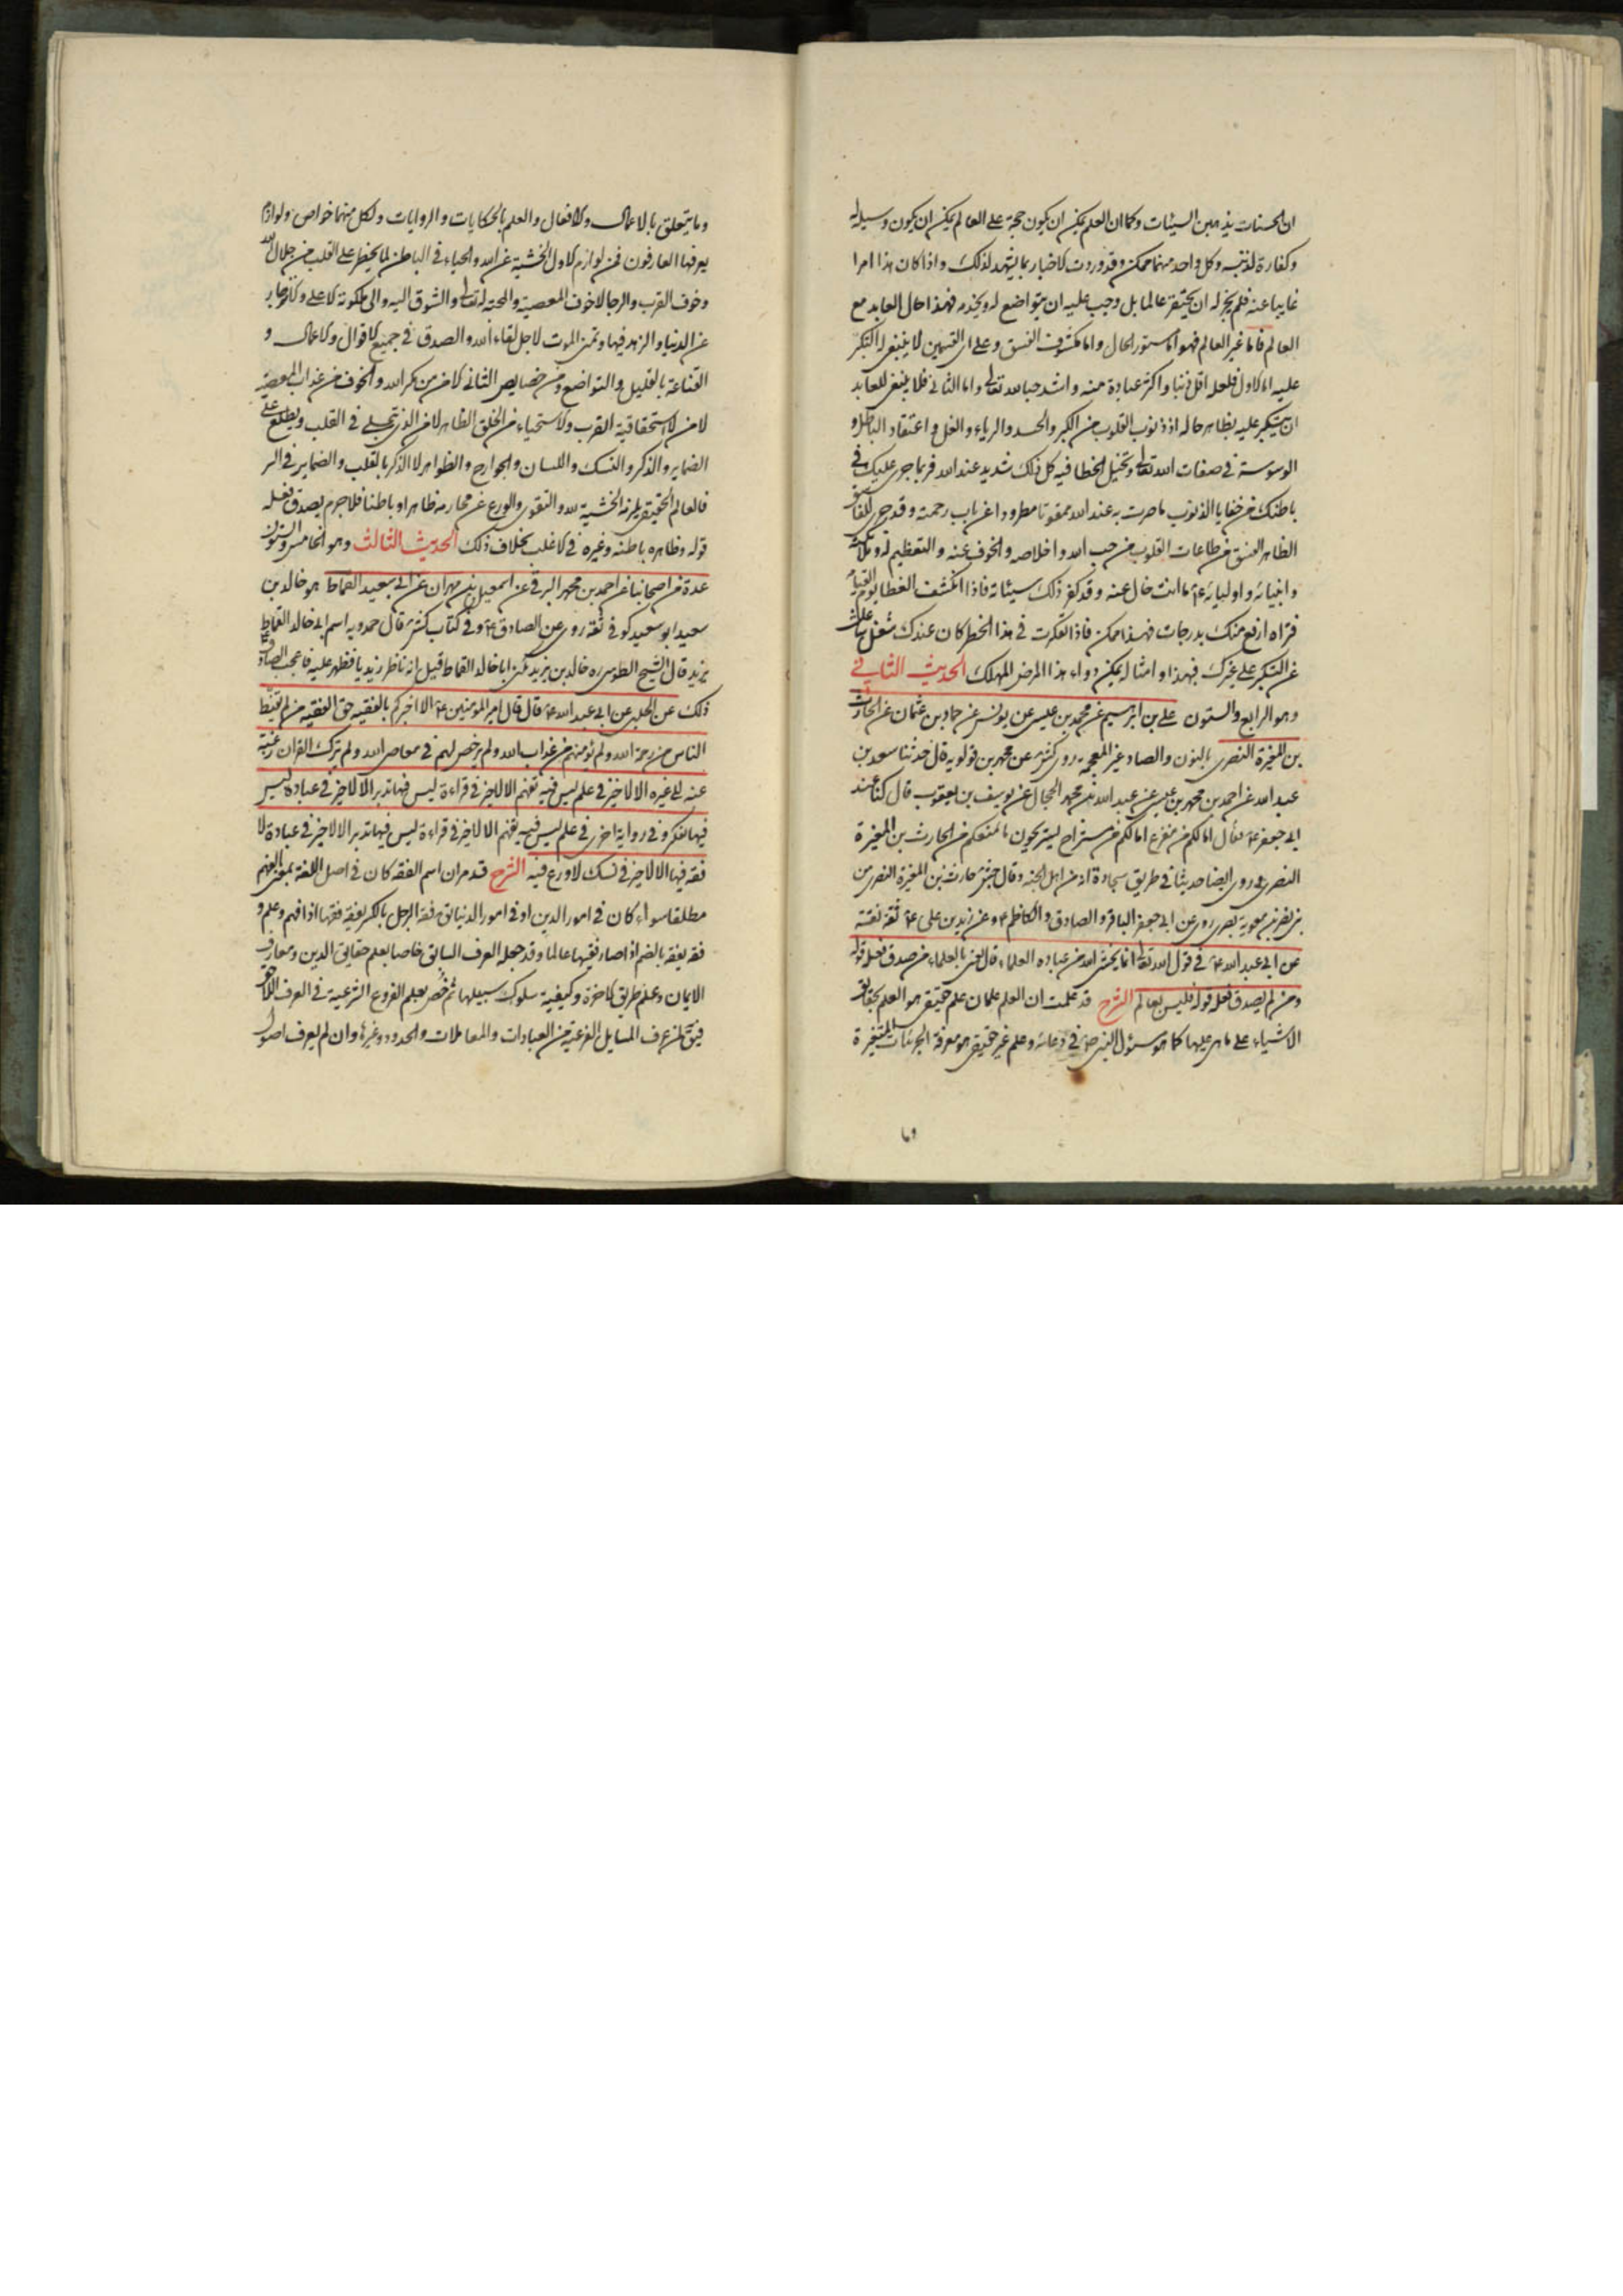 ان الحسنات يذهبن السيئات وكما ان العلم يمكن ان يكون حجة على العالم يمكن ان يكون وسيلة له
وكفارة لذنبه وكل واحد منهما ممكن وقد وردت الاخبار بما يشهد لذلك واذا كان هذا امرا
غايبا عنه فلم يجز له ان يحتقر عالما بل وجب عليه ان يتواضع له ويخدمه فهذا حال العابد مع
العالم فاما غير العالم فهو اما مستور الحال واما مكشوف الفسق وعلى اى القسمين لا ينبغى له التكبر
عليه اما الاول فلعله اقل ذنبا واكثر عبادة منه واشد حبا لله تعالى واما الثانى فلا ينبغى للعابد
ان يتكبر عليه بظاهر حاله اذ ذنوب القلوب من الكبر والحسد والرياء والغل واعتقاد الباطل و
الوسوسة فى صفات الله تعالى وتخيل الخطا فيه كل ذلك شديد عند الله فربما جرى عليك فى
باطنك من خفايا الذنوب ما صرت به عند الله ممقوتا مطرودا عن باب رحمته وقد جرى للفاسق
الظاهر الفسق من طاعات القلوب من حب الله واخلاصه والخوف عنه والتعظيم له ولملائكته
وانبيائه واوليائه ع ما انت خال عنه وقد كفر ذلك سيئاته فاذا انكشف الغطا يوم القيامة
فتراه ارفع منك بدرجات فهذا ممكن فاذا تفكرت فى هذا الخطر كان عندك شغل شاغل
عن التكبر على غيرك فبهذا وامثاله يمكن دواء هذا المرض المهلك الحديث الثانى
وهو الرابع والستون على بن ابرهيم عن محمد بن عيسى عن يونس عن حماد بن عثمان عن الحارث
بن المغيرة النصرى بالنون والصاد غير المعجمه روى كش عن محمد بن قولويه قال حدثنا سعد بن
عبد الله عن احمد بن محمد بن عيسى عن عبد الله بن محمد الحجال عن يونس بن يعقوب قال كنا عند
ابى جعفر ع فقال اما لكم من مفزع اما لكم من مستراح تستريحون ما يمنعكم من الحارث بن المغيرة
النصرى وروى ايضا حديثا فى طريقه سجادة انه من اهل الجنه وقال جش حارث بن المغيرة النصرى من
بنى نصر بن معوية بصرى روى عن ابى جعفر الباقر والصادق والكاظم ع وعن زيد بن على ع ثقة ثقة
عن ابى عبد الله ع فى قول الله تعالى انما يخشى الله من عباده العلماء قال يعنى بالعلماء من صدق فعله قوله
ومن لم يصدق فعله قوله فليس بعالم الشرح قد علمت ان العلم علمان علم حقيقى هو العلم بحقايق
الاشياء على ما هى عليها كما هو مسئول النبى ص فى دعائه وعلم غير حقيقى هو معرفة الجزئيات المتغيرة
وما
وما يتعلق بالاعمال والافعال والعلم بالحكايات والروايات ولكل منهما خواص ولوازم
يعرفها العارفون فمن لوازم الاول الخشية عن الله والحياء فى الباطن لما يخطر على القلب من جلال الله
وخوف القرب والرجا لا خوف المعصية والمحبة له تعالى والشوق اليه والى ملكوته الاعلى
عن الدنيا والزهد فيها وتمنى الموت لاجل لقاء الله والصدق فى جميع الاقوال والاعمال و
القناعة بالقليل والتواضع ومن خصايص الثانى الامن من مكر الله والخوف من عذاب المعصية
لا من لا استحقاقية القرب والاستحياء من الخلق الظاهر لا من الذى تجلى فى القلب ويطلع على
الضماير والذكر والنسك واللسان والجوارح والظواهر لا الذكر بالقلب والضماير فى السر
فالعالم الحقيقى يلزمه الخشية لله والتقوى والورع عن محارمه ظاهرا وباطنا فلا جرم يصدق فعله
قوله وظاهره باطنه وغيره فى الاغلب بخلاف ذلك الحديث الثالث وهو الخامس والستون
عدة من اصحابنا عن احمد بن محمد البرقى عن اسمعيل بن مهران عن ابى سعيد القماط هو خالد بن
سعيد ابو سعيد كوفى ثقة روى عن الصادق ع وفى كتاب كش قال حمدويه اسم ابى خالد القماط
يزيد قال الشيخ الطوسى ره خالد بن يزيد يكنى ابا خالد القماط قيل انه ناظر زيديا فظهر عليه فاعجب الصادق
ذلك عن الحلبى عن ابى عبد الله ع قال قال امير المؤمنين ع الا اخبركم بالفقيه حق الفقيه من لم يقنط
الناس من رحمة الله ولم يؤمنهم من عذاب الله ولم يرخص لهم فى معاصى الله ولم يترك القران رغبة
عنه الى غيره الا لا خير فى علم ليس فيه تفهم الا لا خير فى قراءة ليس فيها تدبر الا لا خير فى عبادة ليس
فيها تفكر وفى رواية اخرى فى علم ليس فيه تفهم الا لا خير فى قراءة ليس فيها تدبر الا لا خير فى عبادة لا
فقه فيها الا لا خير فى نسك لا ورع فيه الشرح قد مر ان اسم الفقه كان فى اصل اللغة بمعنى الفهم
مطلقا سواء كان فى امور الدين او فى امور الدنيا يق فقه الرجل بالكسر يفقه فقها اذا فهم وعلم و
فقه يفقه بالضم اذا صار فقيها عالما وقد جعله العرف السابق خاصا بعلم حقايق الدين ومعارف
الايمان وعلم طريق الاخرة وكيفية سلوك سبيلها ثم خص بعلم الفروع الشرعية فى العرف اللاحق
فيق لمن عرف المسايل الفرعية من العبادات والمعاملات والحدود وغيرها وان لم يعرف اصول